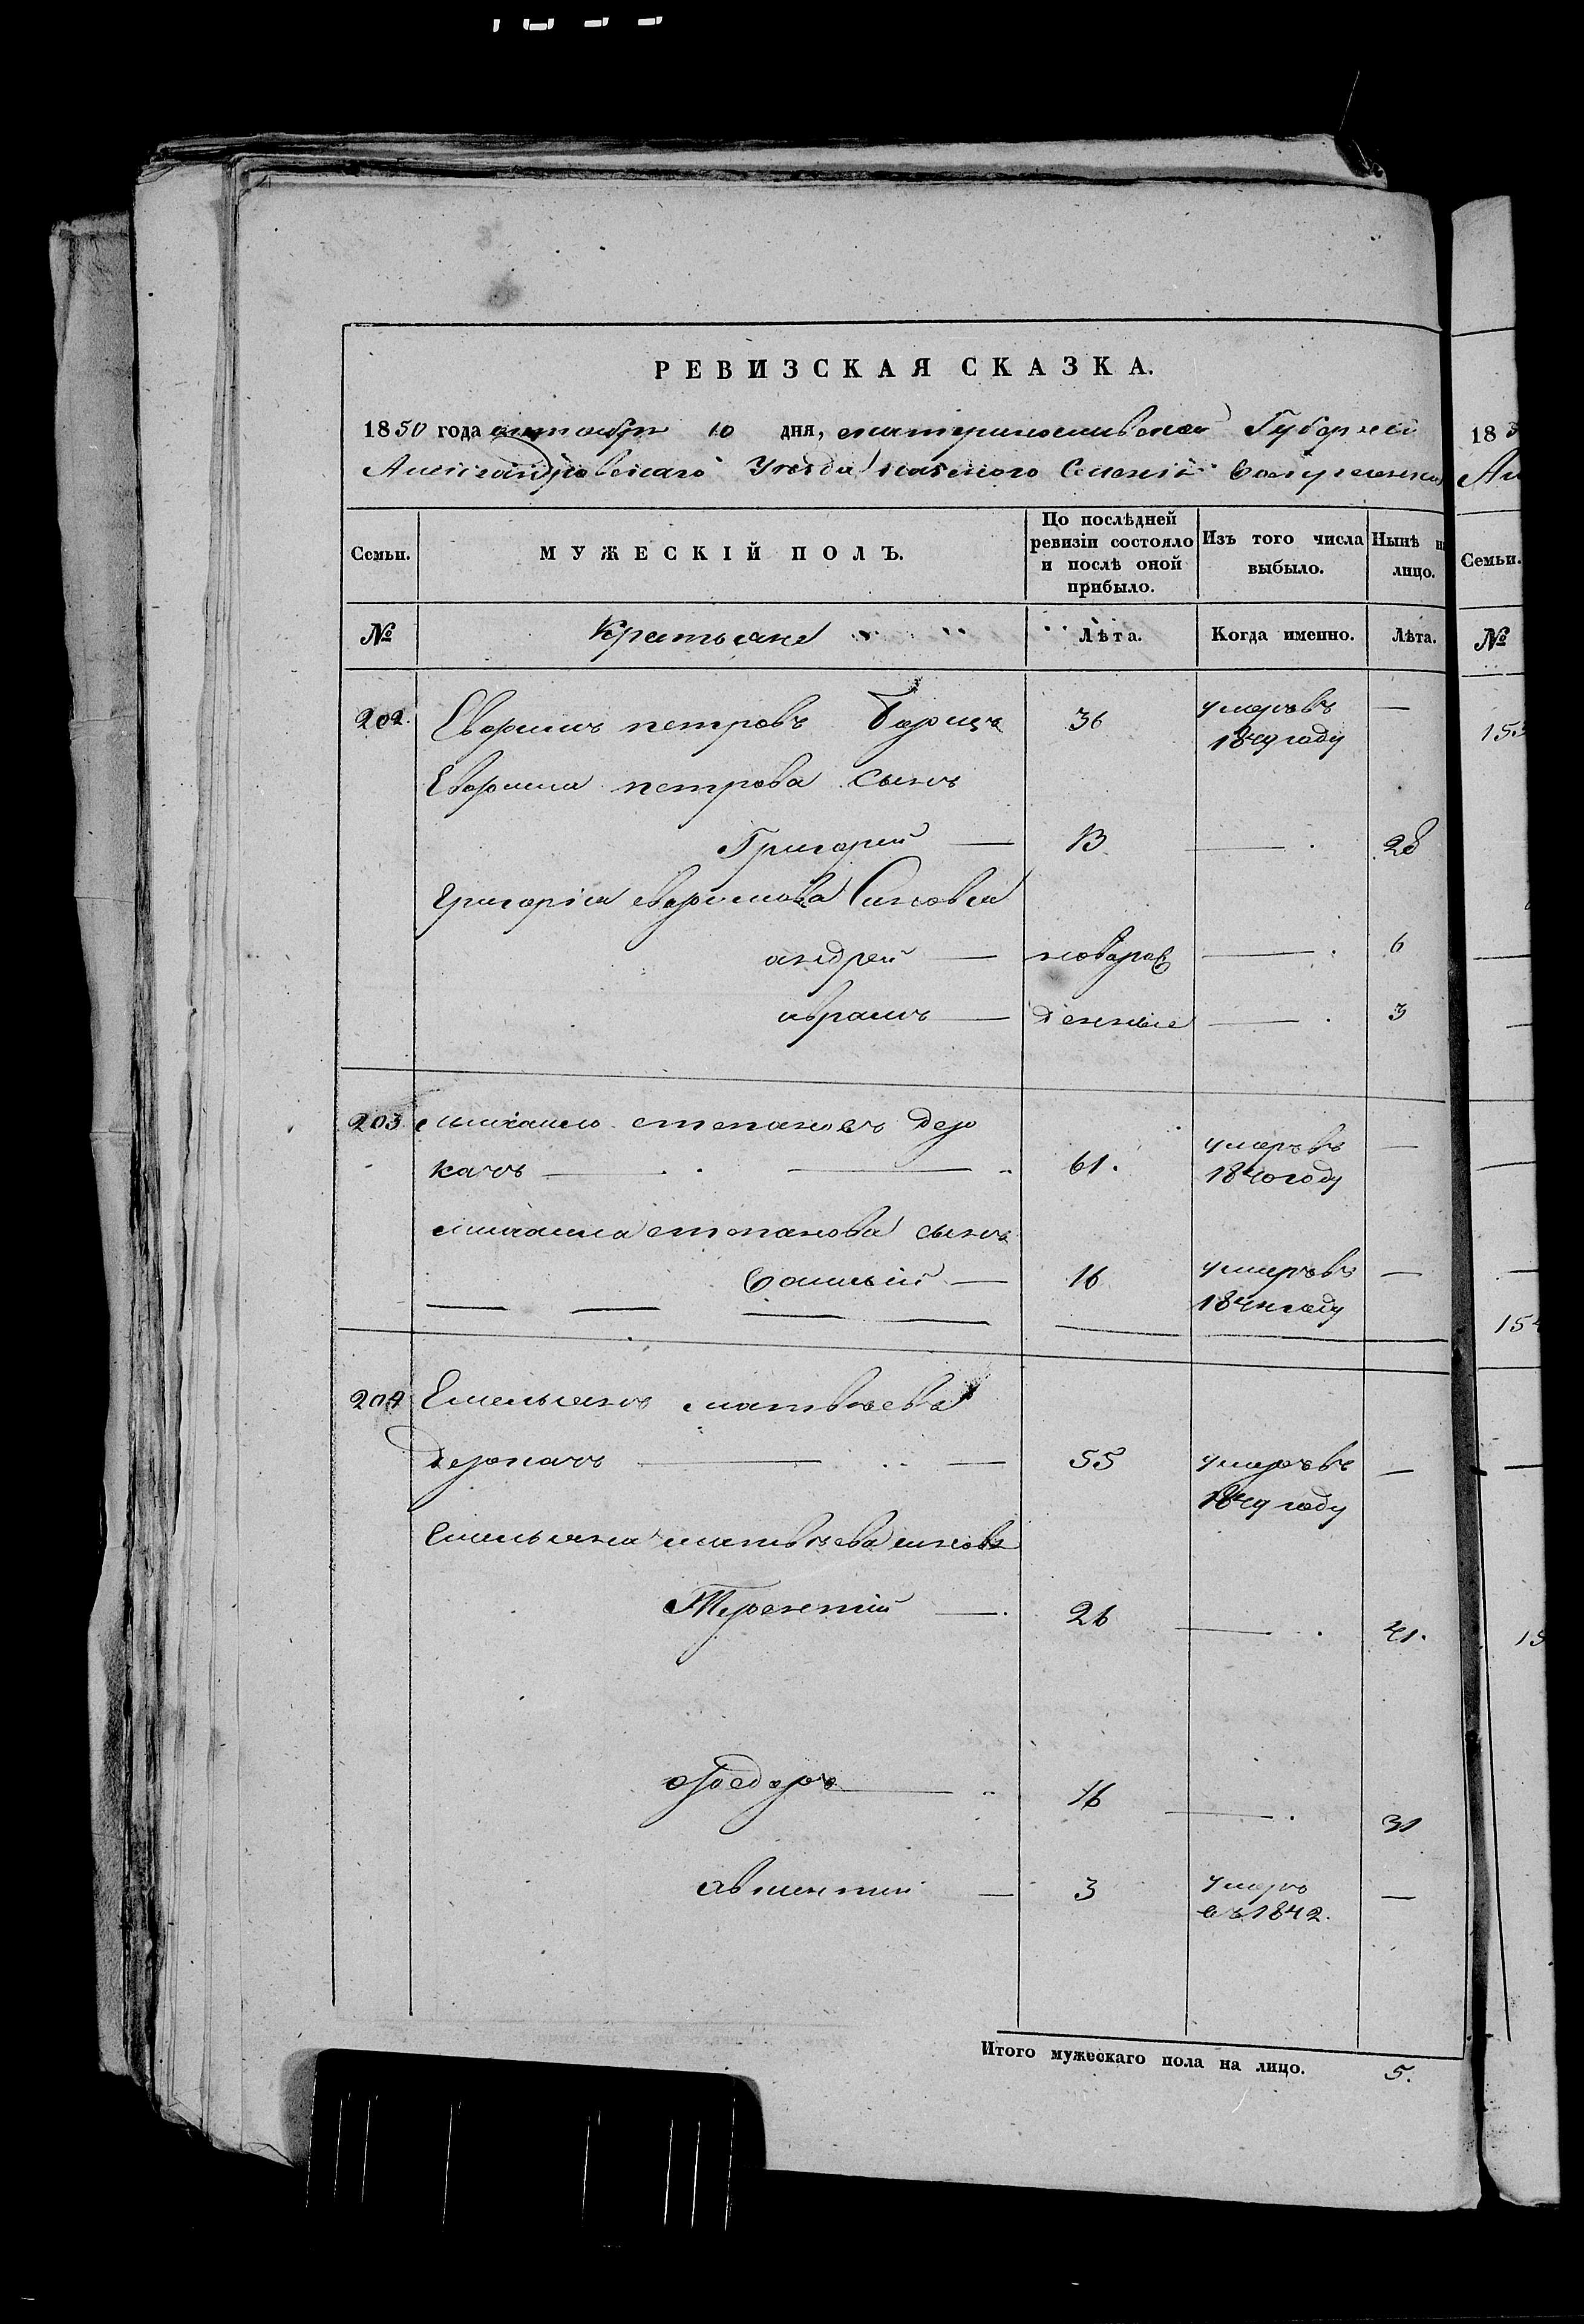 РЕВИЗСКАЯ СКАЗКА.
1850 года октября 10 дня, екатеринославской Губерніи
Александровскаго Уезда казеного Селенія
Семьи.
МУЖЕСКІЙ ПОЛЪ.
По послѣдней ревизіи состояло и послѣ оной прибыло.
Изъ того числа выбыло.
Нынѣ на лицо.
№
Крестьяне
Лѣта.
Когда именно.
Лѣта.
202. петровъ 36 умеръ въ —
1849 году
петрова сынъ
Григорей — 13 — 28
Григорія Синовья
андрей — новорож — 6
аврамъ — денные — 3
203 михаило степановъ Дер
качъ — 61. умеръ въ —
1840 году
михаила степанова сынъ
— 16 умеръ въ —
году
204 Емельянъ матвѣевъ
Деркачъ — 55 умеръ въ —
1849 году
Емельяна матвѣева синовя
Терентій — 26 — 41.
Федоръ — 16 — 31
авксентий — 3 умеръ —
въ 1842.
Итого мужескаго пола на лицо. 5.
18
Семьи.
№